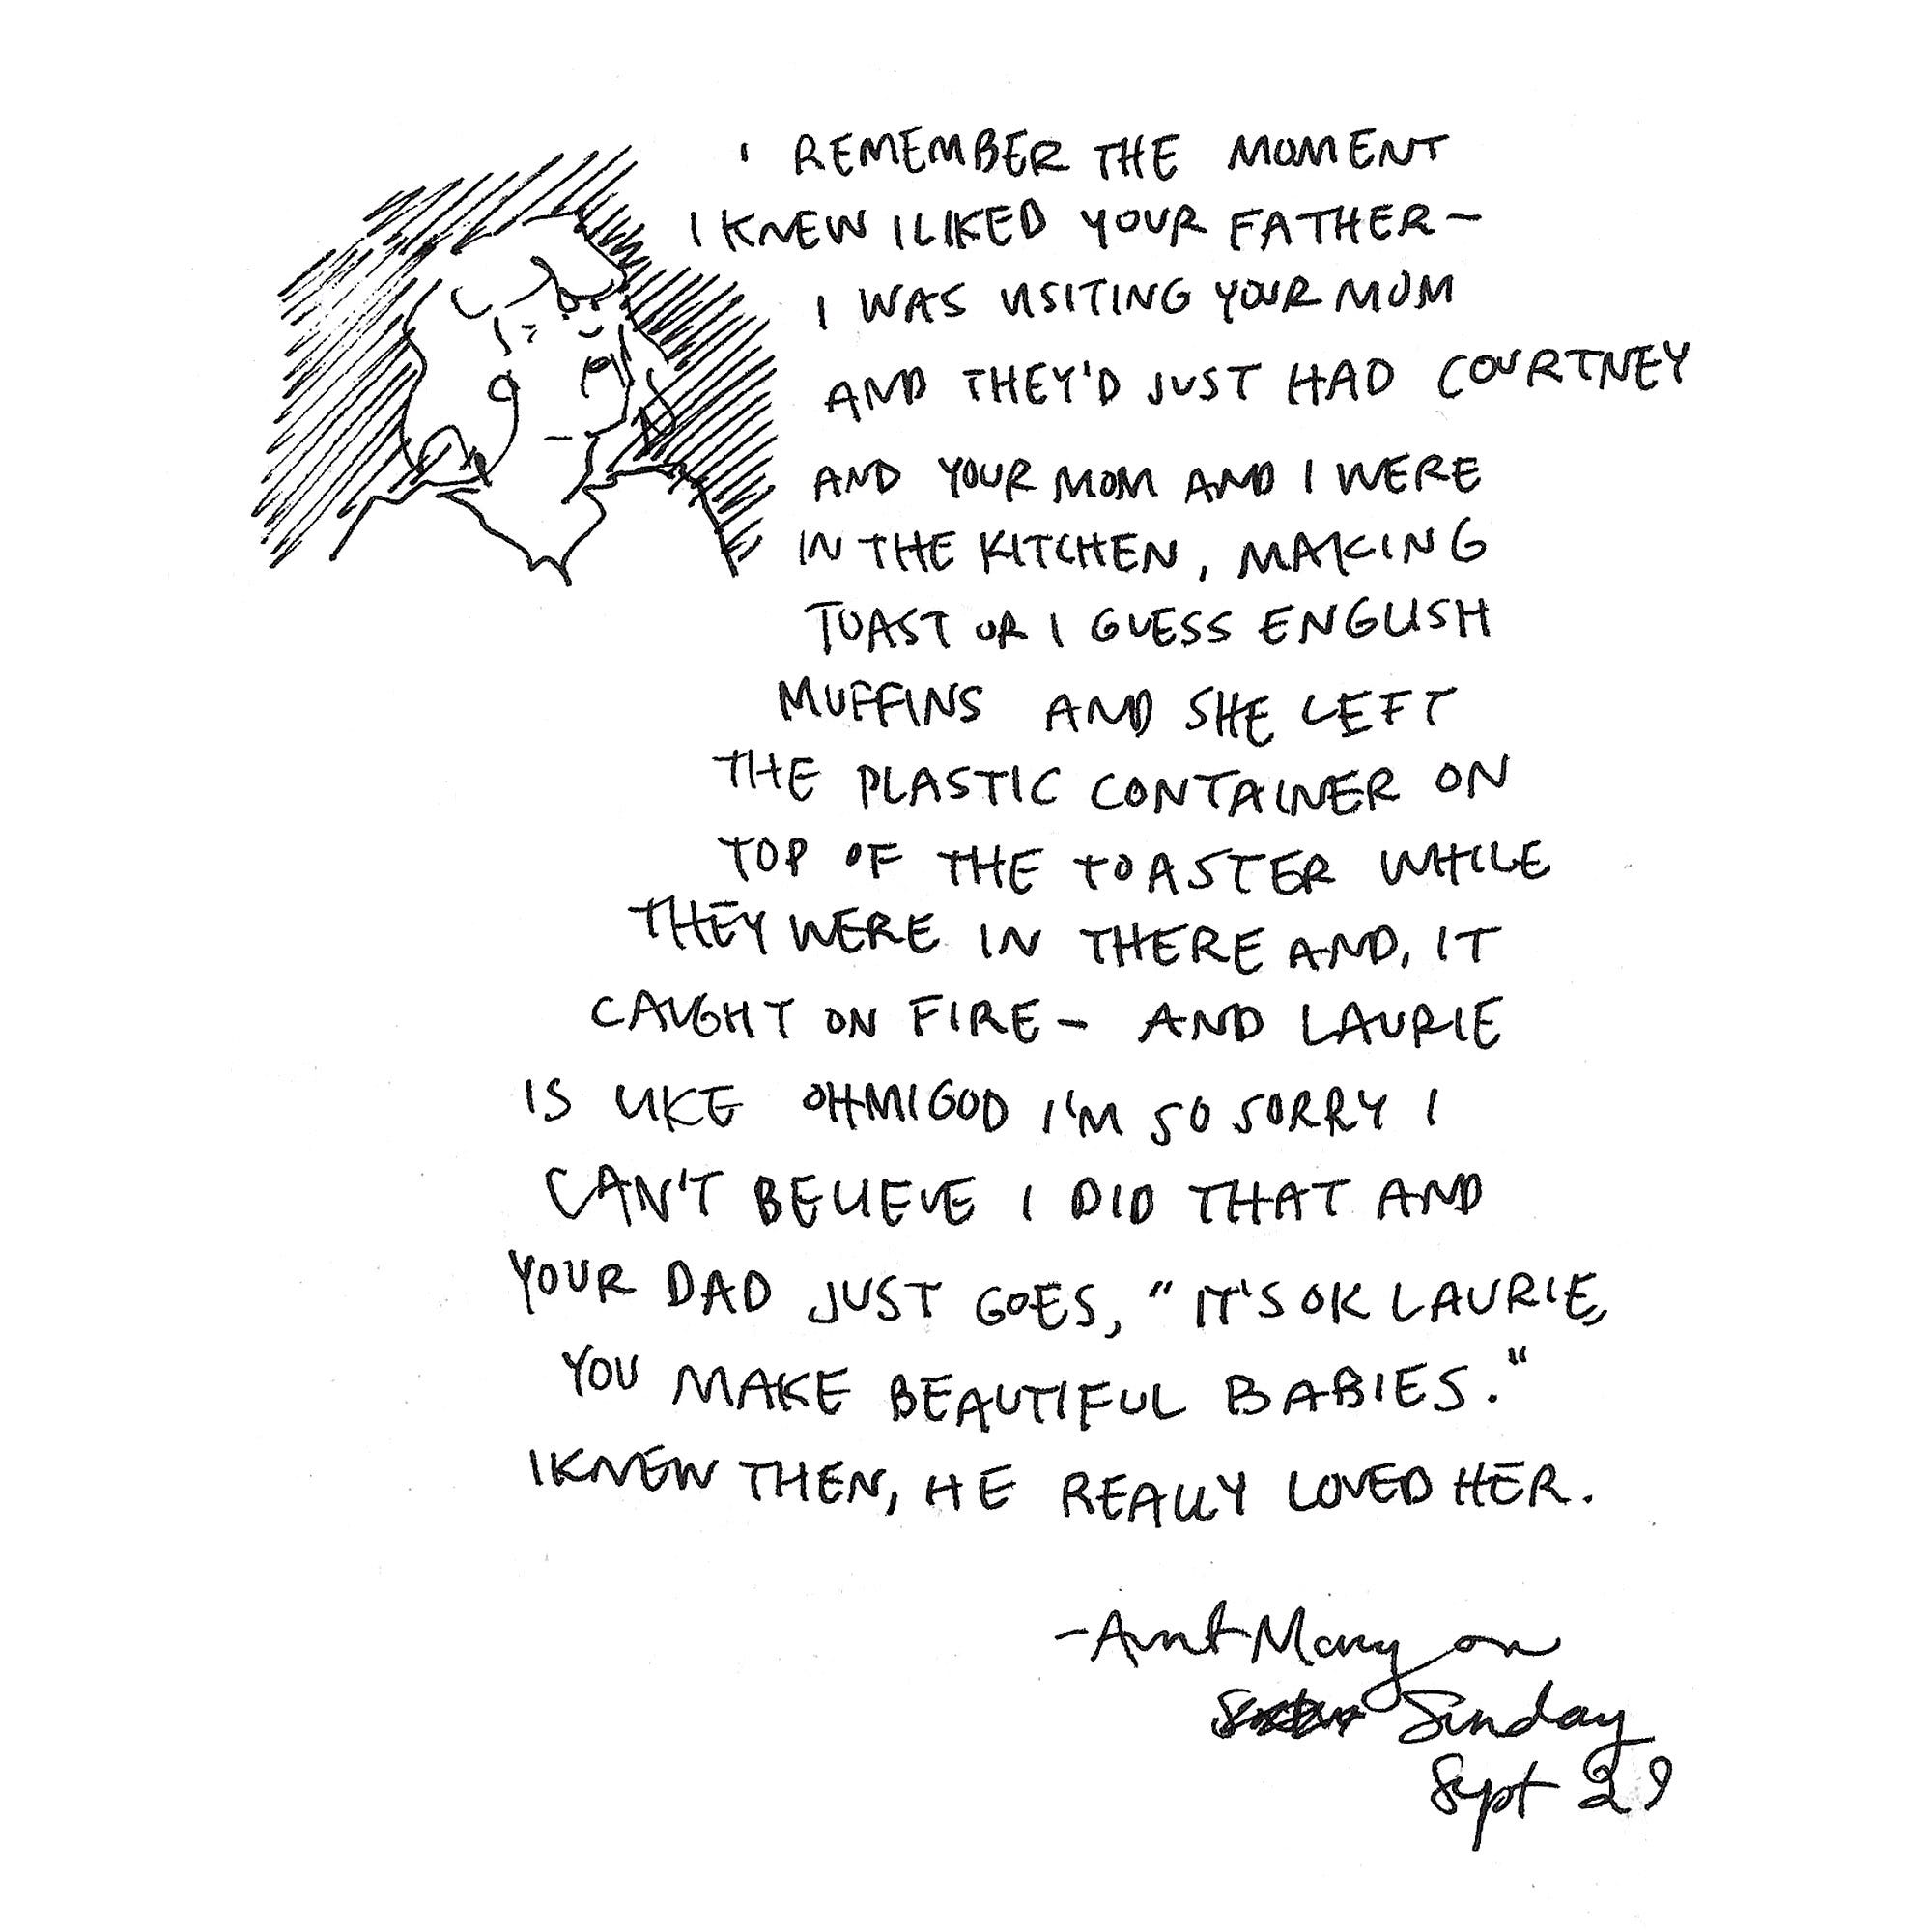 I REMEMBER THE MOMENT
I KNEW I LIKED YOUR FATHER—
I WAS VISITING YOUR MOM
AND THEY'D JUST HAD COURTNEY
AND YOUR MOM AND I WERE
IN THE KITCHEN, MAKING
TOAST OR I GUESS ENGLISH
MUFFINS AND SHE LEFT
THE PLASTIC CONTAINER ON
TOP OF THE TOASTER WHILE
THEY WERE IN THERE AND, IT
CAUGHT ON FIRE— AND LAURIE
IS LIKE OHMIGOD I'M SO SORRY I
CAN'T BELIEVE I DID THAT AND
YOUR DAD JUST GOES, "IT'S OK LAURIE,
YOU MAKE BEAUTIFUL BABIES."
I KNEW THEN, HE REALLY LOVED HER.
-Aunt Mary on
Sunday
Sept 29